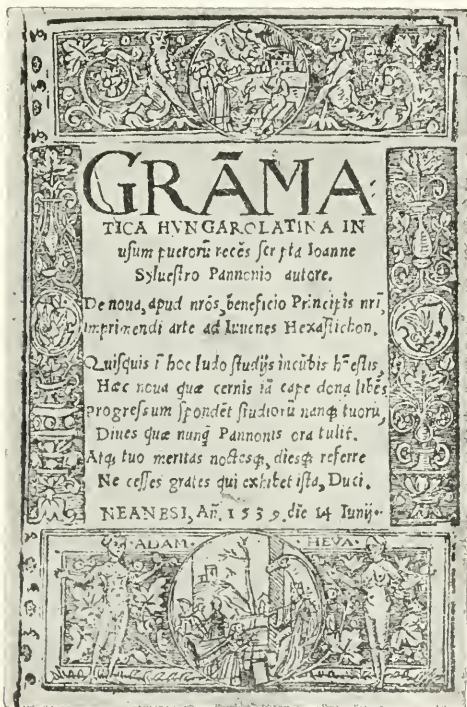 GRÃMA
TICA HVNGAROLATINA IN
uſum puerorũ recẽs ſcripta Ioanne
Sylueſtro Pannonio autore.
De noua, apud nr̃os, beneficio Principis nr̃i,
imprimendi arte ad Iuuenes Hexaſtichon.
Quiſquis ĩ hoc ludo ſtudijs incũbis
Hæc noua quæ cernis iã cape dona libẽs
progreſſum ſpondẽt ſtudiorũ nanq̃ tuorũ,
Diues quæ nunq̃ Pannonis ora tulit.
Atq; tuo meritas noctesq;, diesq; referre
Ne ceſſes grates qui exhibet iſta, Duci.
NEANESI, Añ. 1539. die 14 Iunij.
·ADAM· HEVA·